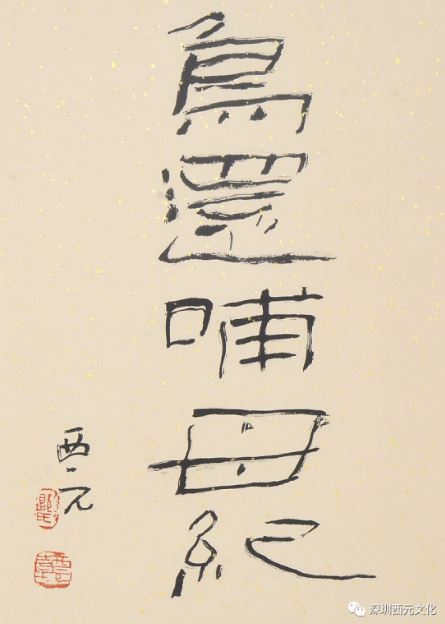 烏還哺母紀
西元
深圳西元文化